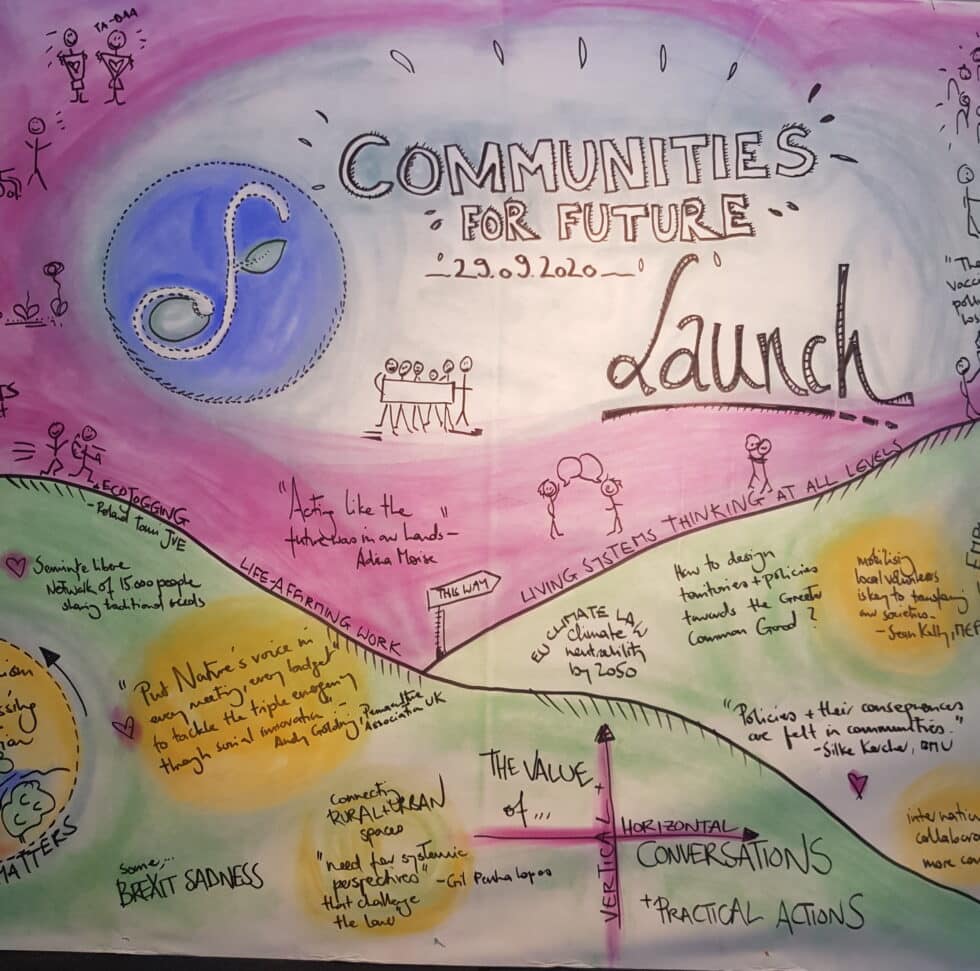 TA-DAA
COMMUNITIES
FOR FUTURE
29.09.2020
Launch
"The
vacc
pol
los
ECOJOGGING
- Poland Town JVE
"Acting like the
future was in our hands"
- Adina Moise
LIVING SYSTEMS THINKING AT ALL LEVELS
LIFE-AFFIRMING WORK
THIS WAY
Network of 15000 people
sharing traditional seeds
"Put Nature's voice in
every meeting, every budget"
to tackle the triple emergency
through social innovation...
Andy Goldring, Permaculture
Association UK
EU CLIMATE LAW
climate
neutrality
by 2050
How to design
territories + policies
towards the Greater
Common Good?
mobilising
local volunteers
is key to transforming
our societies.
- Sean Kelly, MEP
"Policies + their consequences
are felt in communities."
- Silke Karcher, BMU
MATTERS
some...
BREXIT SADNESS
connecting
RURAL+URBAN
spaces
"need for systemic
perspectives"
- Gil Penha Lopes
that challenge
the law
THE VALUE
of...
VERTICAL +
HORIZONTAL
CONVERSATIONS
+ PRACTICAL ACTIONS
internati
collabora
more co